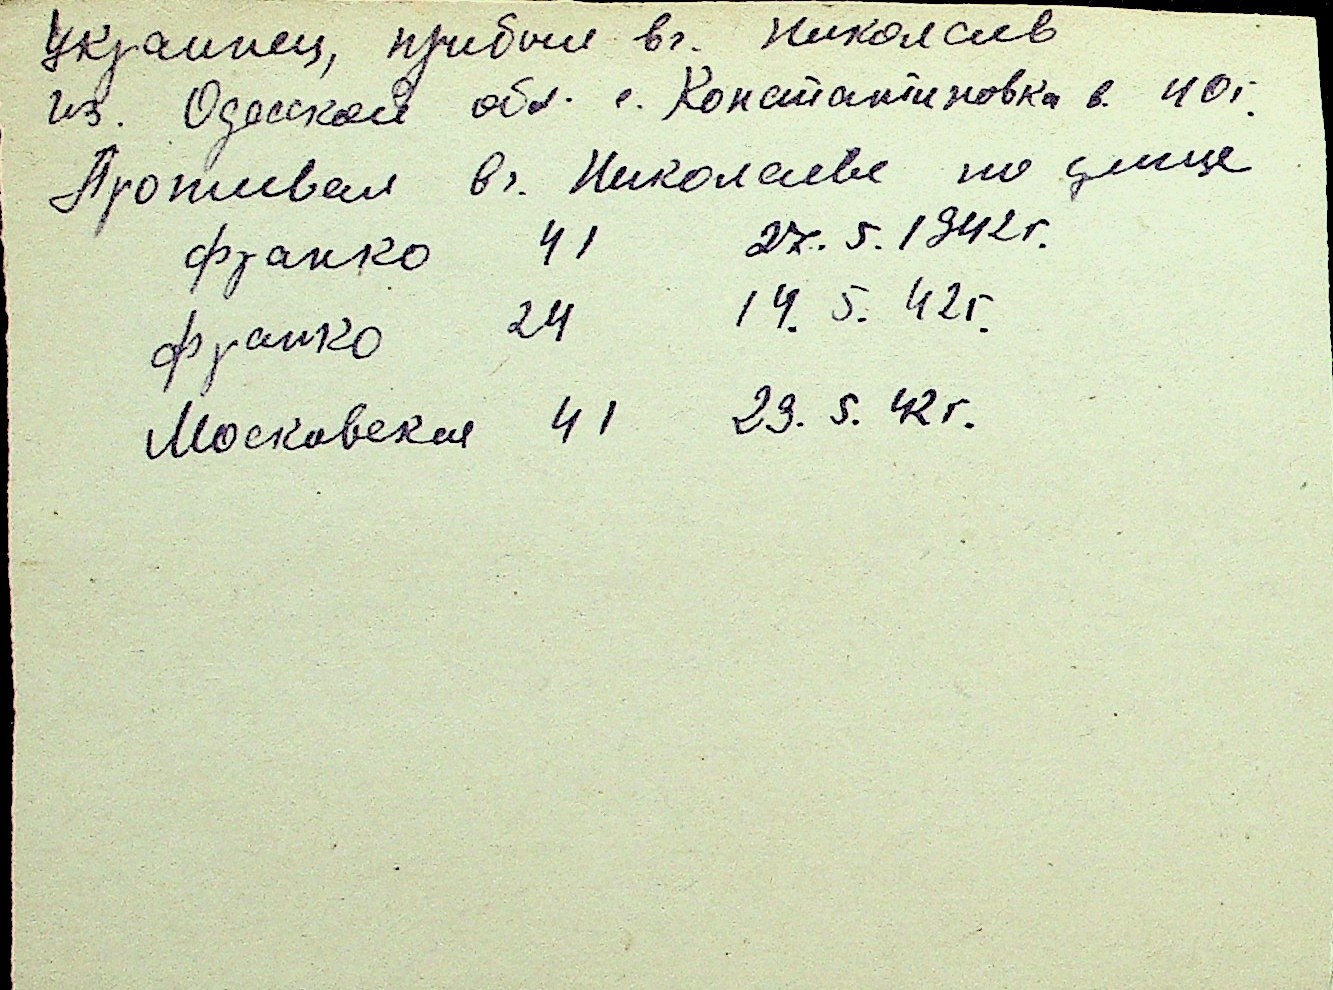 Украинец, прибыл в г. Николаев
из. Одесской обл. с. Константиновка в. 40г.
Проживал в г. Николаеве по улице
Франко 41 27. 5. 1942г.
Франко 24 14. 5. 42г.
Московская 41 29. 5. 42г.